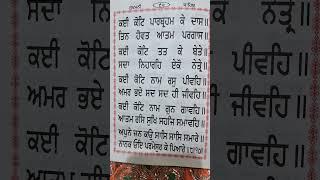 ਕਈ ਕੋਟਿ ਪਾਰਬ੍ਰਹਮ ਕੇ ਦਾਸ ॥
ਤਿਨ ਹੋਵਤ ਆਤਮ ਪਰਗਾਸ ॥
ਕਈ ਕੋਟਿ ਤਤ ਕੇ ਬੇਤੇ ॥
ਸਦਾ ਨਿਹਾਰਹਿ ਏਕੋ ਨੇਤ੍ਰੇ ॥
ਕਈ ਕੋਟਿ ਨਾਮ ਰਸੁ ਪੀਵਹਿ ॥
ਅਮਰ ਭਏ ਸਦ ਸਦ ਹੀ ਜੀਵਹਿ ॥
ਕਈ ਕੋਟਿ ਨਾਮ ਗੁਨ ਗਾਵਹਿ ॥
ਆਤਮ ਰਸਿ ਸੁਖਿ ਸਹਜਿ ਸਮਾਵਹਿ ॥
ਅਪੁਨੇ ਜਨ ਕਉ ਸਾਸਿ ਸਾਸਿ ਸਮਾਰੇ ॥
ਨਾਨਕ ਓਇ ਪਰਮੇਸੁਰ ਕੇ ਪਿਆਰੇ ॥੮॥੧੦॥